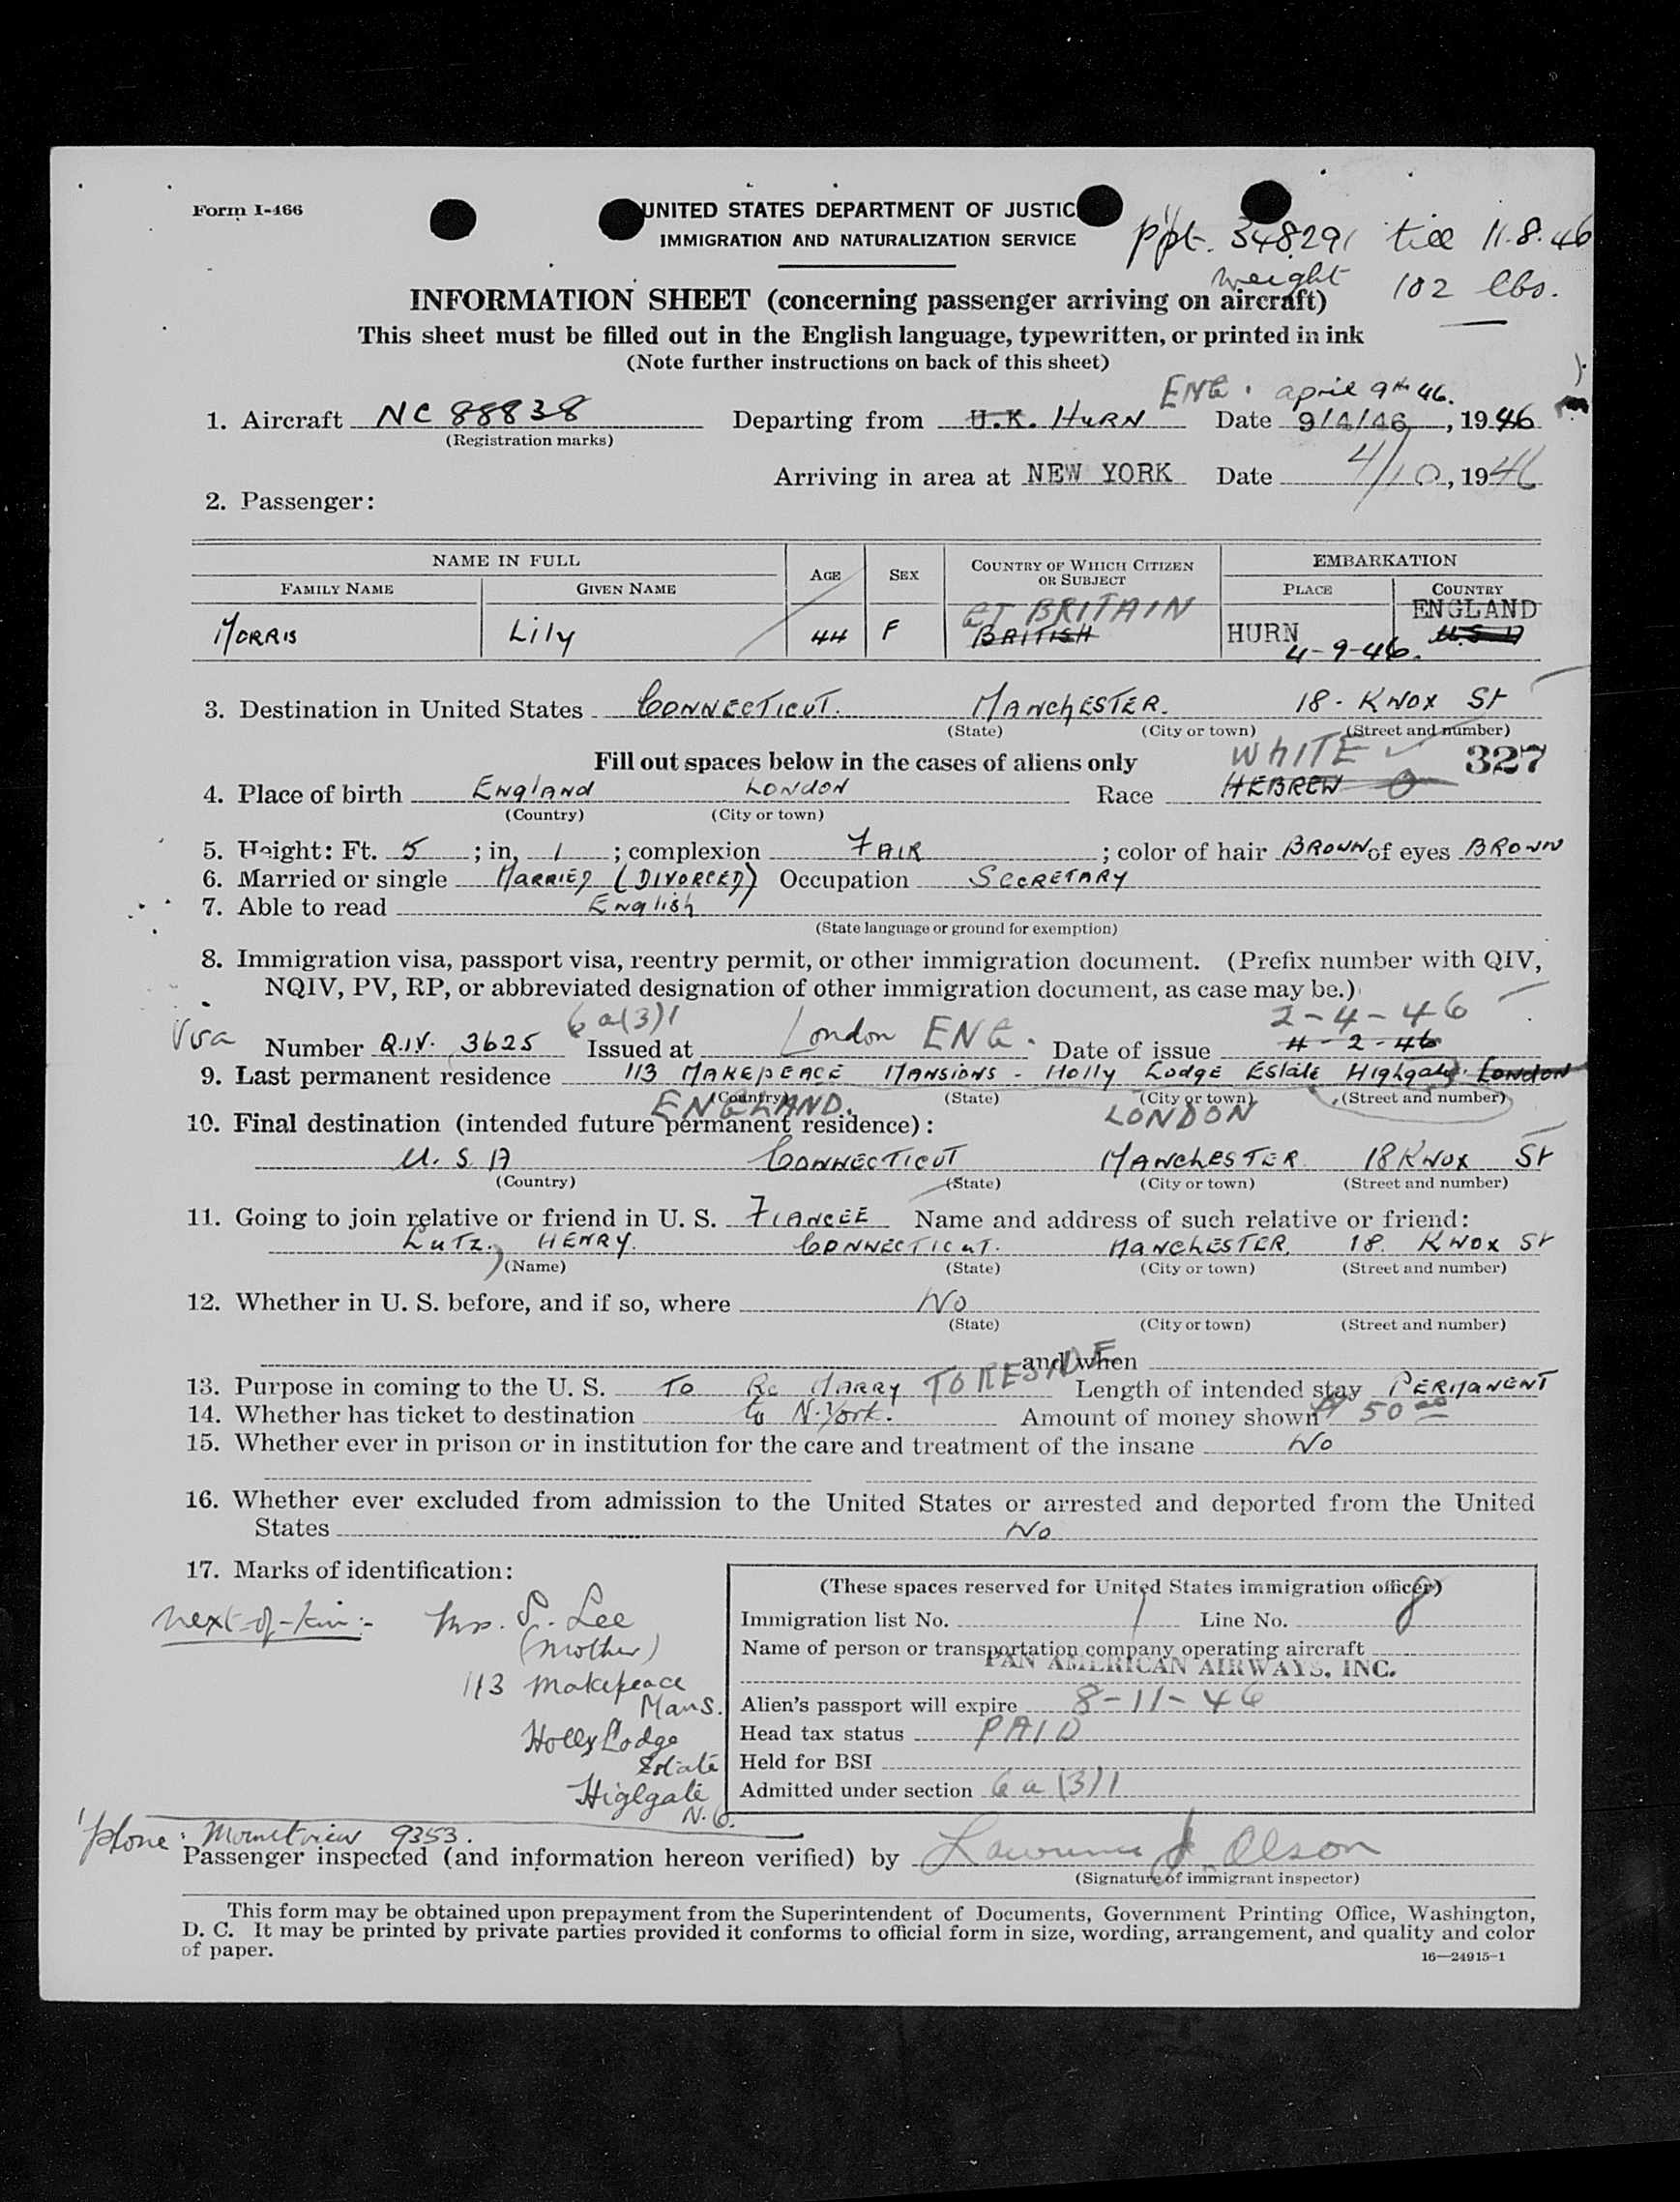 Form I-466
UNITED STATES DEPARTMENT OF JUSTIC
IMMIGRATION AND NATURALIZATION SERVICE
ppt. 348291 till 11.8.46
weight 102 lbs.
INFORMATION SHEET (concerning passenger arriving on aircraft)
This sheet must be filled out in the English language, typewritten, or printed in ink
(Note further instructions on back of this sheet)
ENG. april 9th 46.
1. Aircraft NC 88838 Departing from U.K. HURN Date 9/4/46, 1946
(Registration marks)
Arriving in area at NEW YORK Date 4/10, 1946
2. Passenger:
NAME IN FULL AGE SEX COUNTRY OF WHICH CITIZEN OR SUBJECT EMBARKATION
FAMILY NAME GIVEN NAME PLACE COUNTRY
GT BRITAIN ENGLAND
MORRIS Lily 44 F BRITISH HURN U.S.A
4-9-46.
3. Destination in United States CONNECTICUT. MANCHESTER. 18 - KNOX St
(State) (City or town) (Street and number)
Fill out spaces below in the cases of aliens only WHITE 327
4. Place of birth ENGLAND LONDON Race HEBREW
(Country) (City or town)
5. Height: Ft. 5; in. 1; complexion FAIR; color of hair BROWN of eyes BROWN
6. Married or single MARRIED (DIVORCED) Occupation SECRETARY
7. Able to read English
(State language or ground for exemption)
8. Immigration visa, passport visa, reentry permit, or other immigration document. (Prefix number with QIV,
NQIV, PV, RP, or abbreviated designation of other immigration document, as case may be.)
6a(3)1 2-4-46
Visa Number Q.I.V. 3625 Issued at London ENG. Date of issue 4-2-46
9. Last permanent residence 113 MAKEPEACE MANSIONS - Holly Lodge Estate Highgate. London
(Country) (State) (City or town) (Street and number)
ENGLAND. LONDON
10. Final destination (intended future permanent residence):
U.S.A CONNECTICUT MANCHESTER 18 KNOX St
(Country) (State) (City or town) (Street and number)
11. Going to join relative or friend in U. S. FIANCEE Name and address of such relative or friend:
LUTZ, HENRY. CONNECTICUT. MANCHESTER, 18. KNOX St
(Name) (State) (City or town) (Street and number)
12. Whether in U. S. before, and if so, where No
(State) (City or town) (Street and number)
and when
13. Purpose in coming to the U. S. To Re MARRY TO RESIDE Length of intended stay PERMANENT
14. Whether has ticket to destination to N.York. Amount of money shown $ 50 00
15. Whether ever in prison or in institution for the care and treatment of the insane No
16. Whether ever excluded from admission to the United States or arrested and deported from the United
States No
17. Marks of identification:
next-of-kin:- Mrs. S. Lee
(Mother)
113 Makepeace
Mans.
Holly Lodge
Estate
Higlgate
N.6.
'phone: Mountview 9353.
(These spaces reserved for United States immigration officer)
Immigration list No. 1 Line No. 8
Name of person or transportation company operating aircraft
PAN AMERICAN AIRWAYS, INC.
Alien's passport will expire 8-11-46
Head tax status PAID
Held for BSI
Admitted under section 6a(3)1
Passenger inspected (and information hereon verified) by Lawrence J Olson
(Signature of immigrant inspector)
This form may be obtained upon prepayment from the Superintendent of Documents, Government Printing Office, Washington,
D. C. It may be printed by private parties provided it conforms to official form in size, wording, arrangement, and quality and color
of paper.
16—24915-1